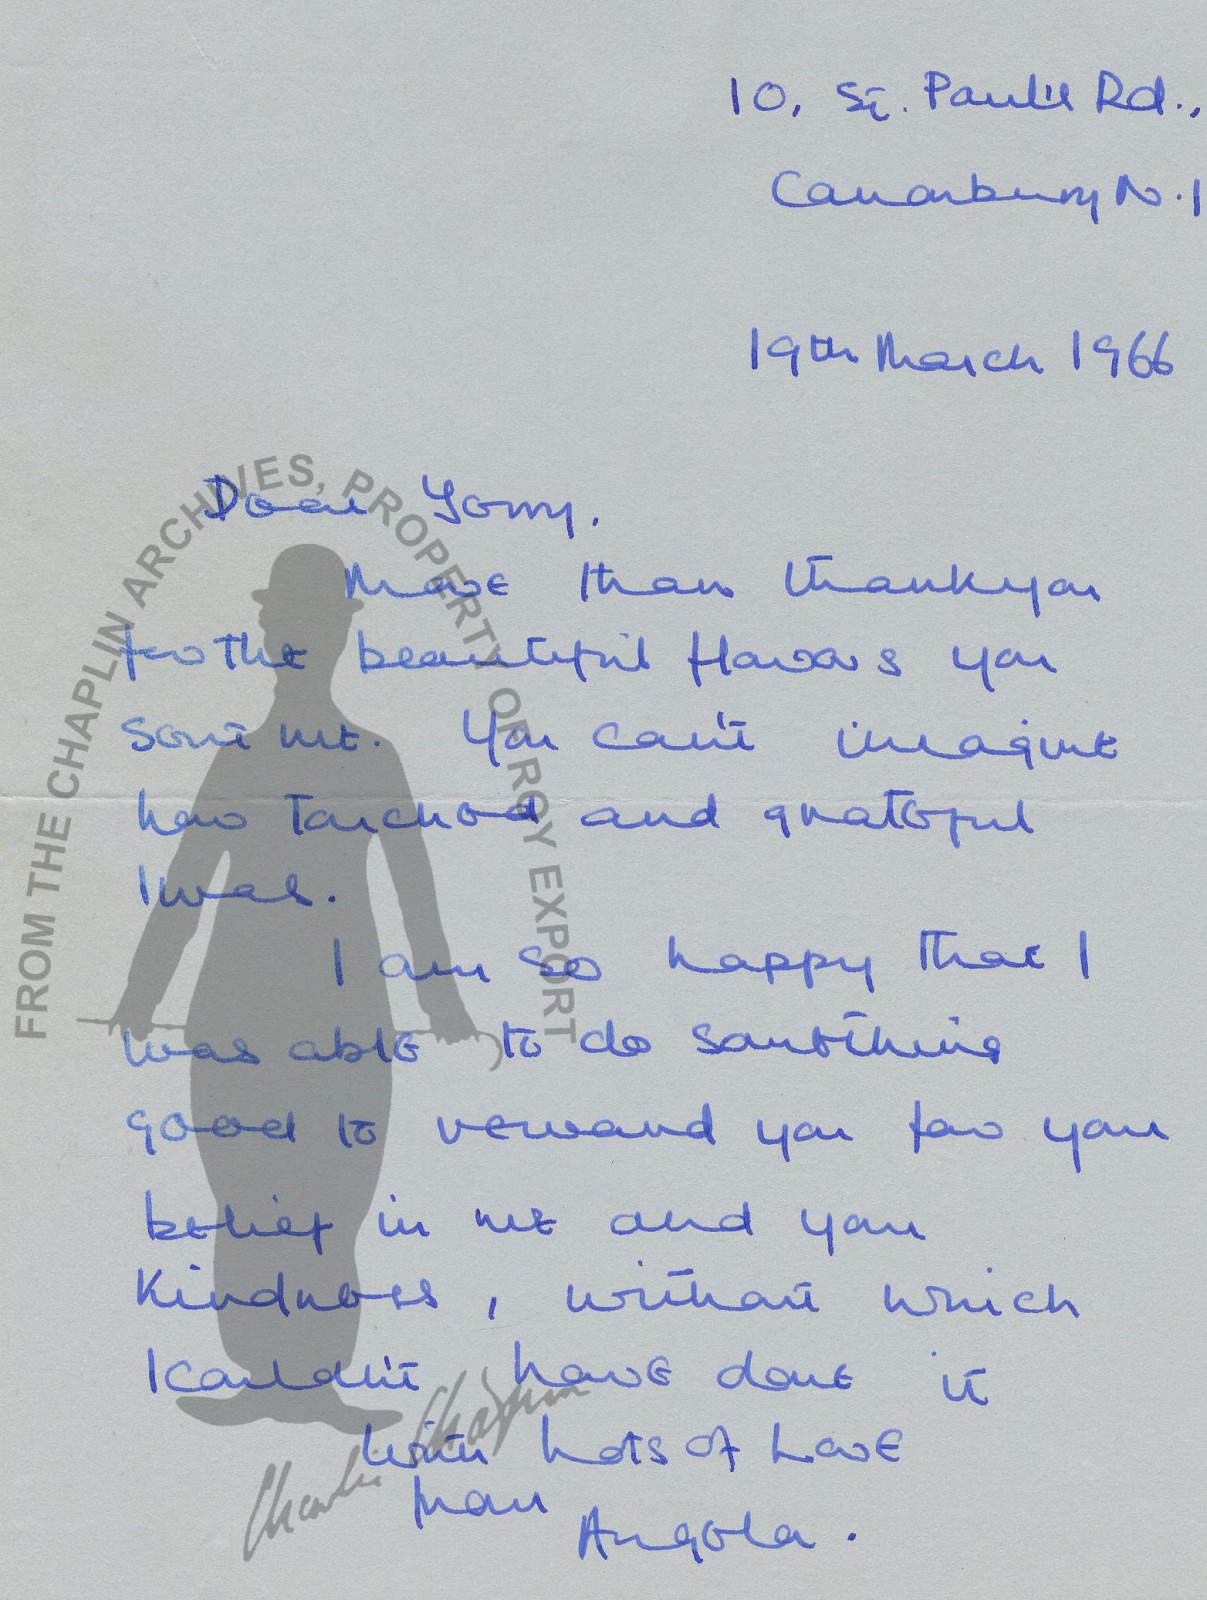 10, St. Paul's Rd.,
Canonbury N.1
19th March 1966
Dear Jerry,
More than thankyou
for the beautiful flowers you
sent me. You can't imagine
how touched and grateful
I was.
I am so happy that I
was able to do something
good to reward you for your
belief in me and your
kindness, without which
I couldn't have done it
With Lots of Love
from
Angela.
FROM THE CHAPLIN ARCHIVES, PROPERTY OF ROY EXPORT
Charlie Chaplin